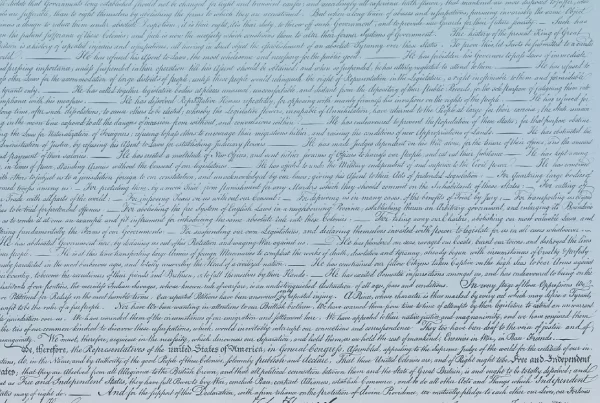 that Governments long established should not be changed for light and transient causes; and accordingly all experience hath shewn, that mankind are more disposed to suffer, while
evils are sufferable, than to right themselves by abolishing the forms to which they are accustomed. But when a long train of abuses and usurpations, pursuing invariably the same Object
is now the necessity which constrains them to alter their former Systems of Government. The history of the present King of Great
is a history of repeated injuries and usurpations, all having in direct object the establishment of an absolute Tyranny over these States. To prove this, let Facts be submitted to a candid
world. He has refused his Assent to Laws, the most wholesome and necessary for the public good. He has forbidden his Governors to pass Laws of immediate
and pressing importance, unless suspended in their operation till his Assent should be obtained; and when so suspended, he has utterly neglected to attend to them. He has refused to
other Laws for the accommodation of large districts of people, unless those people would relinquish the right of Representation in the Legislature, a right inestimable to them and formidable
to tyrants only. He has called together legislative bodies at places unusual, uncomfortable, and distant from the depository of their public Records, for the sole purpose of fatiguing them into
compliance with his measures. He has dissolved Representative Houses repeatedly, for opposing with manly firmness his invasions on the rights of the people. He has refused for
time, after such dissolutions, to cause others to be elected; whereby the Legislative powers, incapable of Annihilation, have returned to the People at large for their exercise; the State remain-
ing in the mean time exposed to all the dangers of invasion from without, and convulsions within. He has endeavoured to prevent the population of these States; for that purpose obstruc-
ting the Laws for Naturalization of Foreigners; refusing to pass others to encourage their migrations hither, and raising the conditions of new Appropriations of Lands. He has obstructed the
Administration of Justice, by refusing his Assent to Laws for establishing Judiciary powers. He has made Judges dependent on his Will alone, for the tenure of their offices, and the amount
and payment of their salaries. He has erected a multitude of New Offices, and sent hither swarms of Officers to harrass our people, and eat out their substance. He has kept among
us, in times of peace, Standing Armies without the Consent of our legislatures. He has affected to render the Military independent of and superior to the Civil power. He has combined
with others to subject us to a jurisdiction foreign to our constitution, and unacknowledged by our laws; giving his Assent to their Acts of pretended Legislation: For Quartering large bodies of
armed troops among us: For protecting them, by a mock Trial, from punishment for any Murders which they should commit on the Inhabitants of these States: For cutting off
our Trade with all parts of the world: For imposing Taxes on us without our Consent: For depriving us in many cases, of the benefits of Trial by Jury: For transporting us beyond
Seas to be tried for pretended offences: For abolishing the free System of English Laws in a neighbouring Province, establishing therein an Arbitrary government, and enlarging its Boundaries
so as to render it at once an example and fit instrument for introducing the same absolute rule into these Colonies: For taking away our Charters, abolishing our most valuable Laws, and
altering fundamentally the Forms of our Governments: For suspending our own Legislatures, and declaring themselves invested with power to legislate for us in all cases whatsoever.
He has abdicated Government here, by declaring us out of his Protection and waging War against us. He has plundered our seas, ravaged our Coasts, burnt our towns, and destroyed the lives
of our people. He is at this time transporting large Armies of foreign Mercenaries to compleat the works of death, desolation and tyranny, already begun with circumstances of Cruelty & perfidy
paralleled in the most barbarous ages, and totally unworthy the Head of a civilized nation. He has constrained our fellow Citizens taken Captive on the high Seas to bear Arms against
their Country, to become the executioners of their friends and Brethren, or to fall themselves by their Hands. He has excited domestic insurrections amongst us, and has endeavoured to bring on the
inhabitants of our frontiers, the merciless Indian Savages, whose known rule of warfare, is an undistinguished destruction of all ages, sexes and conditions. In every stage of these Oppressions We
have Petitioned for Redress in the most humble terms: Our repeated Petitions have been answered only by repeated injury. A Prince, whose character is thus marked by every act which may define a Tyrant,
is unfit to be the ruler of a free people. Nor have We been wanting in attentions to our Brittish brethren. We have warned them from time to time of attempts by their legislature to extend an unwarrant-
able jurisdiction over us. We have reminded them of the circumstances of our emigration and settlement here. We have appealed to their native justice and magnanimity, and we have conjured them
by the ties of our common kindred to disavow these usurpations, which, would inevitably interrupt our connections and correspondence. They too have been deaf to the voice of justice and of
consanguinity. We must, therefore, acquiesce in the necessity, which denounces our Separation, and hold them, as we hold the rest of mankind, Enemies in War, in Peace Friends.
We, therefore, the Representatives of the united States of America, in General Congress, Assembled, appealing to the Supreme Judge of the world for the rectitude of our in-
tentions, do, in the Name, and by Authority of the good People of these Colonies, solemnly publish and declare, That these United Colonies are, and of Right ought to be Free and Independent
States; that they are Absolved from all Allegiance to the British Crown, and that all political connection between them and the State of Great Britain, is and ought to be totally dissolved; and
that as Free and Independent States, they have full Power to levy War, conclude Peace, contract Alliances, establish Commerce, and to do all other Acts and Things which Independent
States may of right do. And for the support of this Declaration, with a firm reliance on the protection of divine Providence, we mutually pledge to each other our Lives, our Fortunes